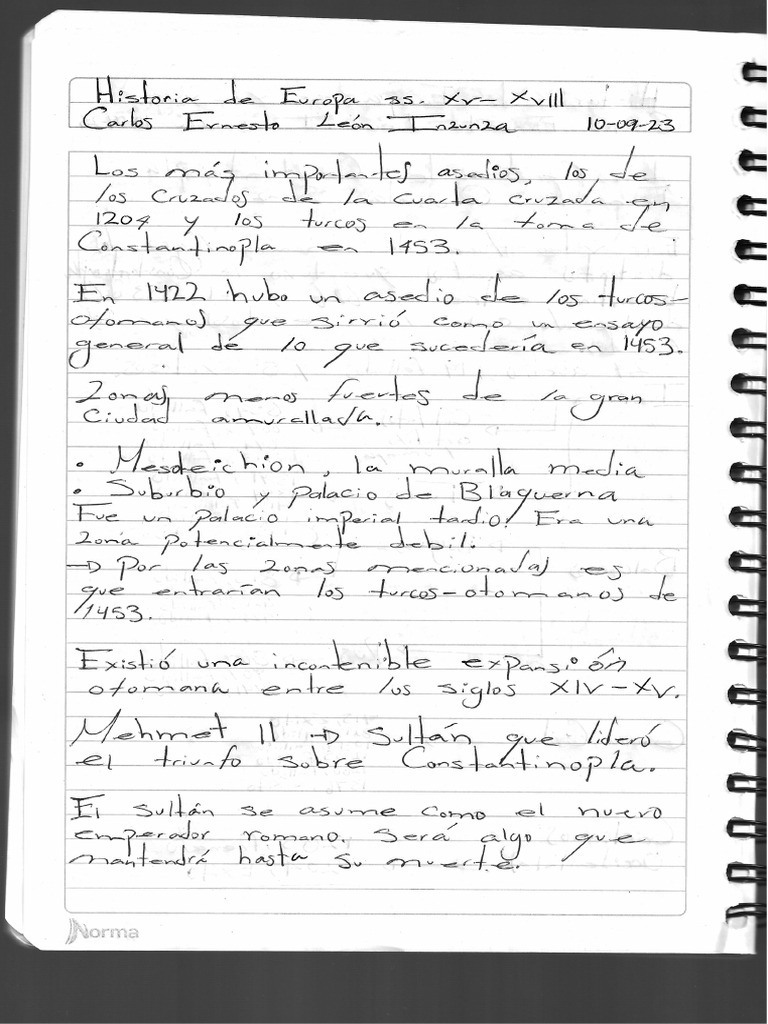 Historia de Europa ss. XV-XVIII
Carlos Ernesto León Inzunza 10-09-23
Los más importantes asedios, los de
los Cruzados de la Cuarta Cruzada en
1204 y los turcos en la toma de
Constantinopla en 1453.
En 1422 hubo un asedio de los turcos-
otomanos que sirvió como un ensayo
general de lo que sucedería en 1453.
Zonas menos fuertes de la gran
Ciudad amurallada.
• Mesoteichion, la muralla media
• Suburbio y palacio de Blaquerna
Fue un palacio imperial tardio. Era una
zona potencialmente debil.
→ Por las zonas mencionadas es
que entrarían los turcos-otomanos de
1453.
Existió una incontenible expansión
otomana entre los siglos XIV-XV.
Mehmet II → Sultán que lideró
el triunfo sobre Constantinopla.
El sultán se asume como el nuevo
emperador romano. Será algo que
mantendrá hasta su muerte.
Norma